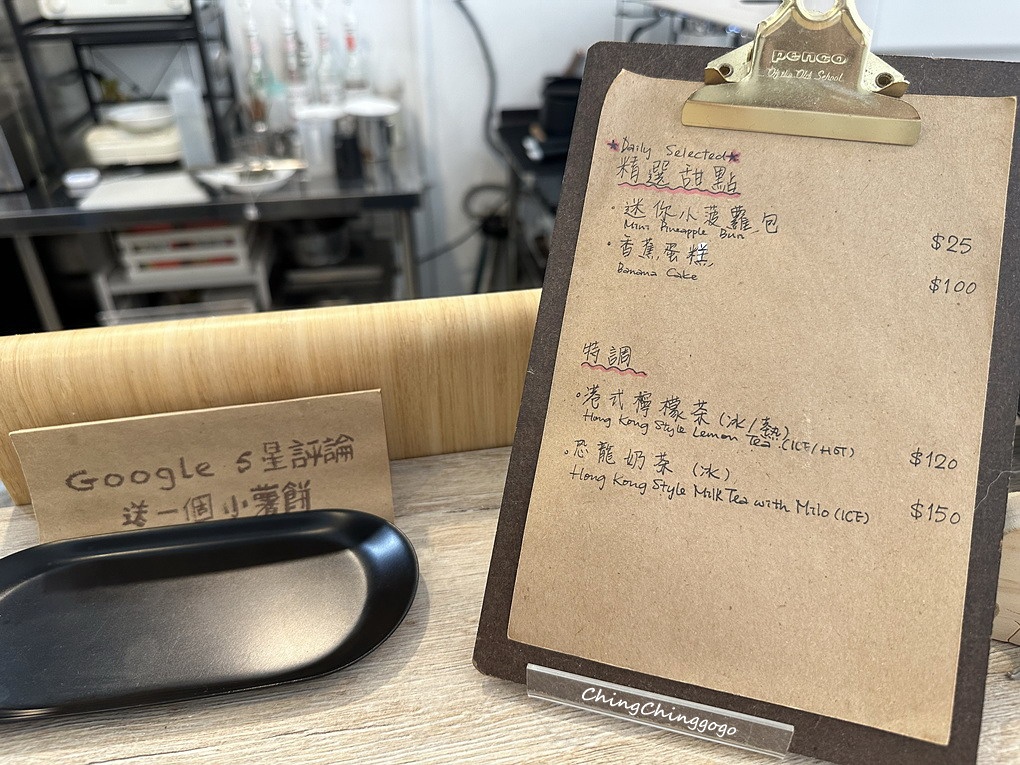 penco
Old School
★Daily Selected★
精選甜點
迷你小菠蘿包
Mini Pineapple Bun
$25
香蕉蛋糕
Banana Cake
$100
特調
港式檸檬茶(冰/熱)
Hong Kong Style Lemon Tea (ICE/HOT)
$120
恐龍奶茶(冰)
Hong Kong Style Milk Tea with Milo (ICE)
$150
Google 5星評論
送一個小薯餅
ChingChinggogo